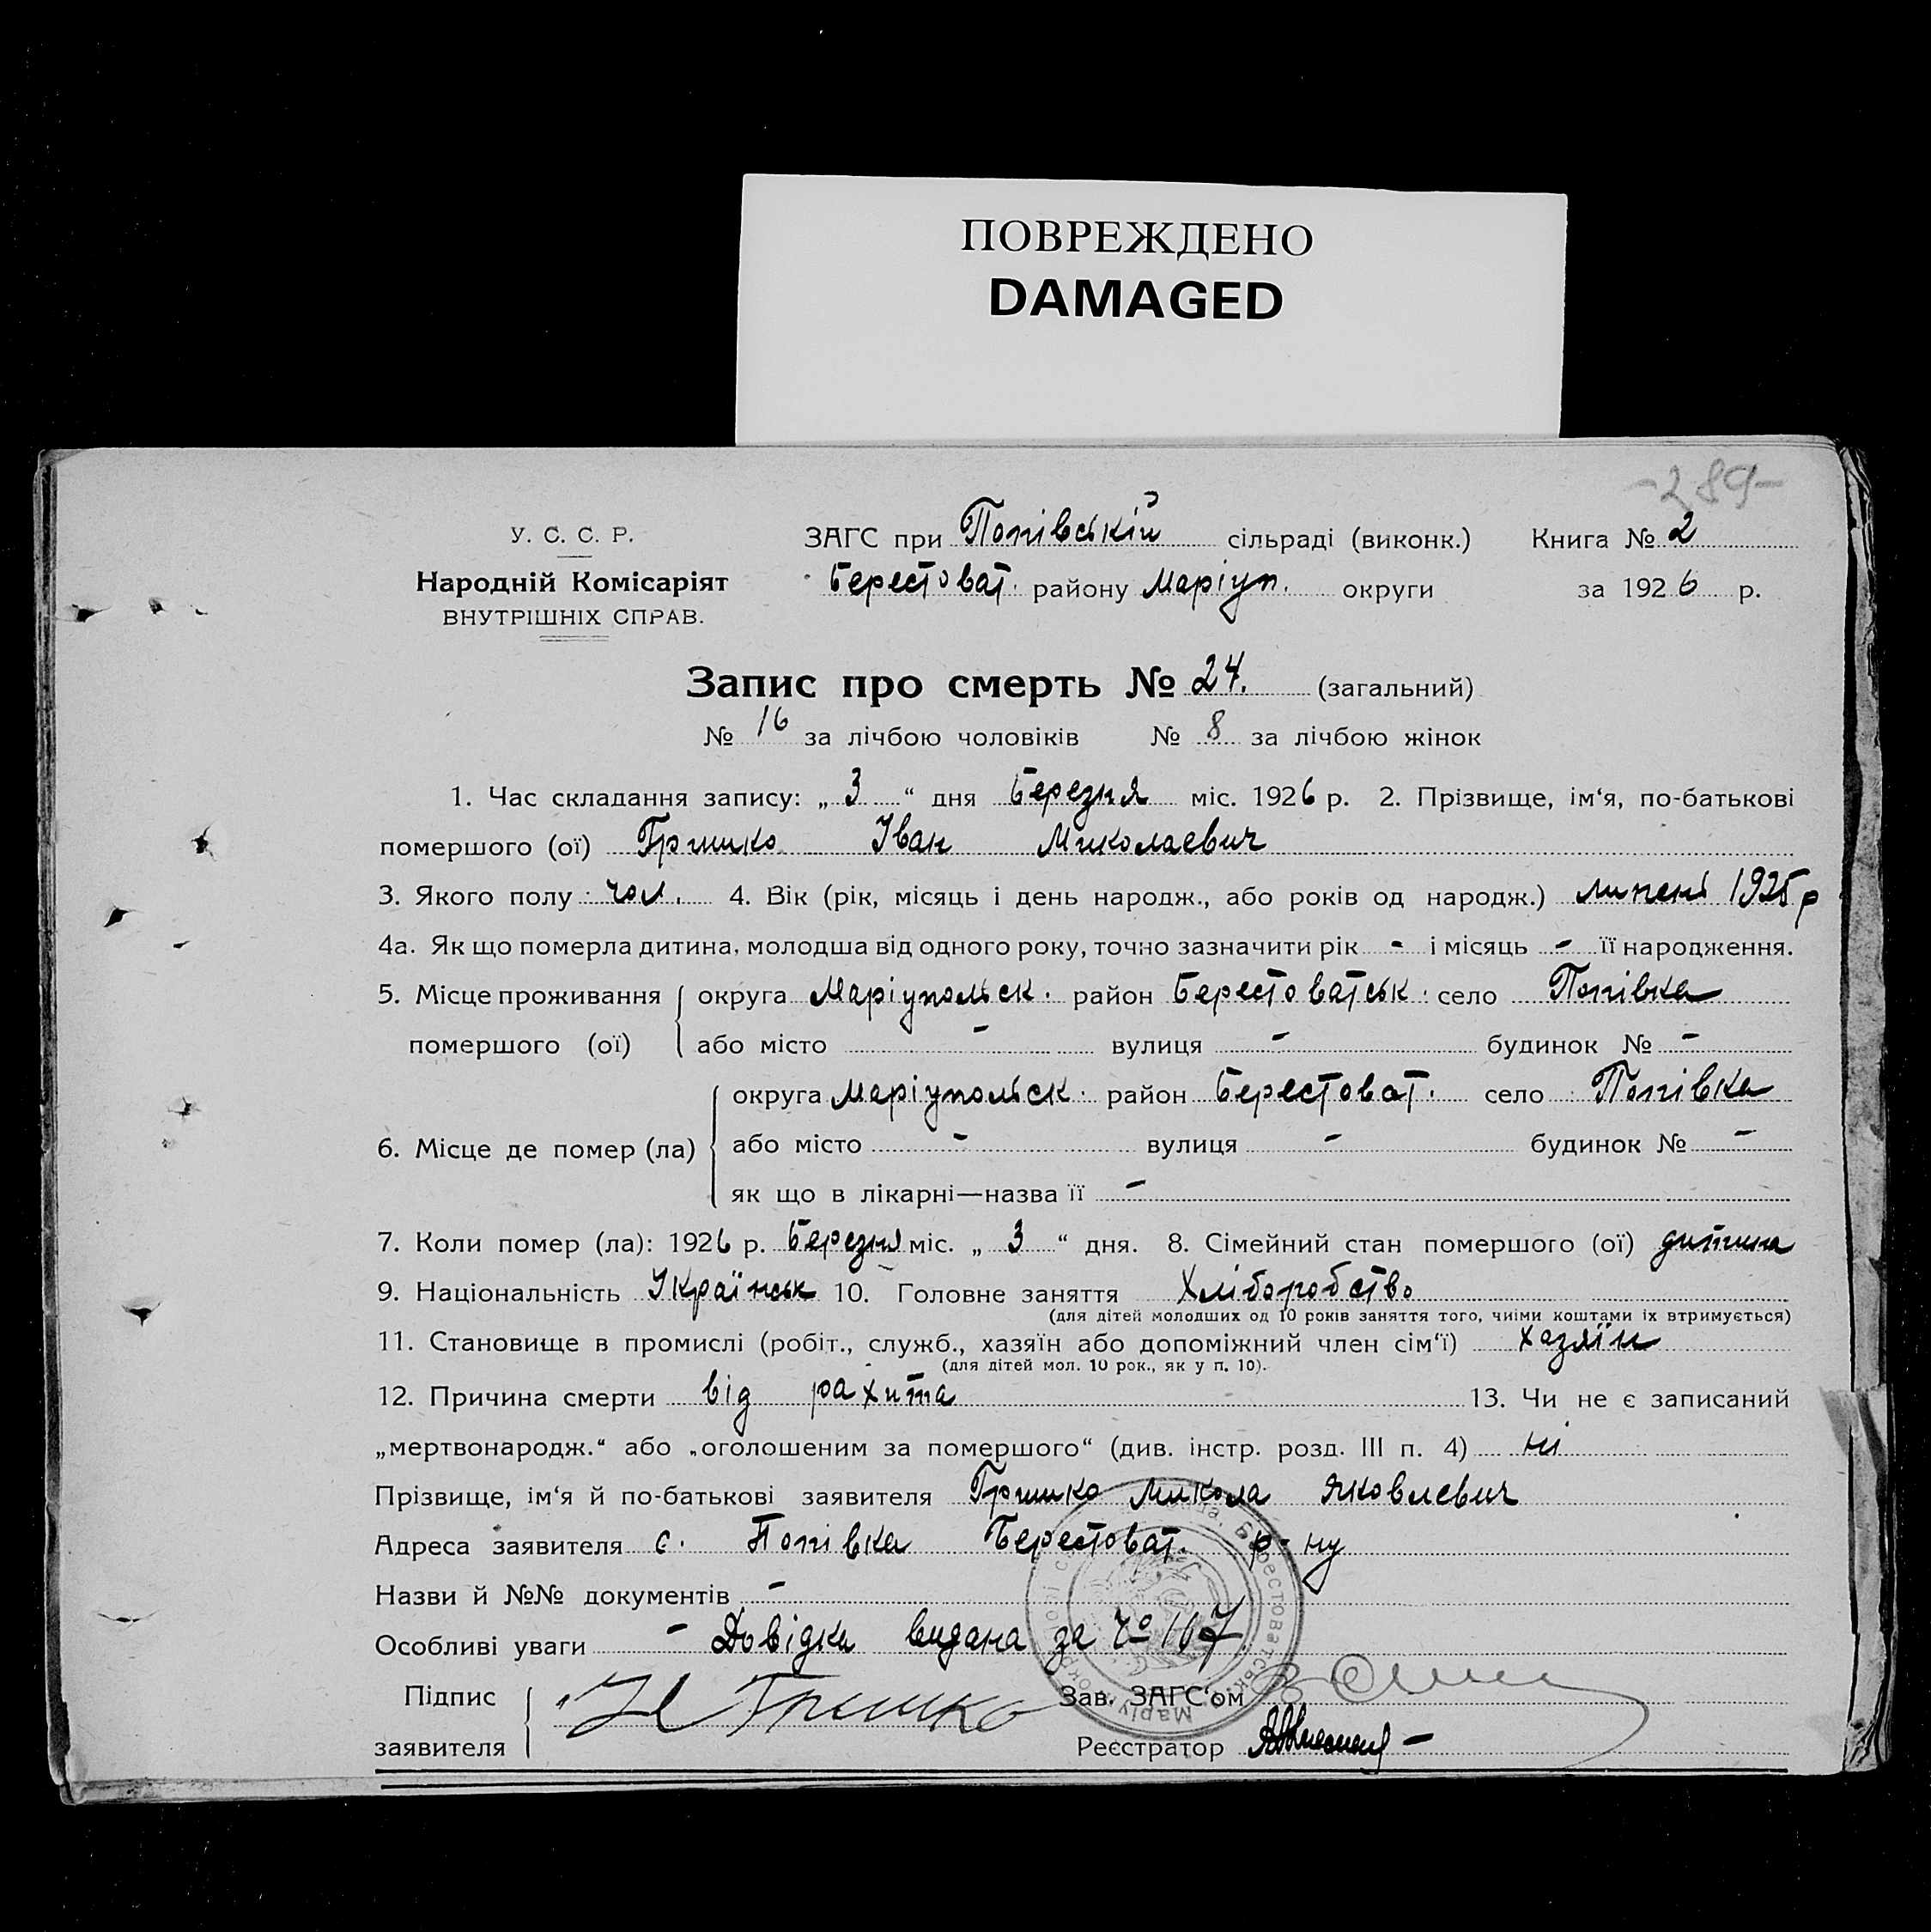 ПОВРЕЖДЕНО
DAMAGED
-289-
У. С. С. Р.
Народній Комісаріят
ВНУТРІШНІХ СПРАВ.
ЗАГС при Попівській сільраді (виконк.) Книга № 2
Берестоват. району Маріуп. округи за 1926 р.
Запис про смерть № 24. (загальний)
№ 16 за лічбою чоловіків № 8 за лічбою жінок
1. Час складання запису: „ 3 “ дня Березня міс. 1926 р. 2. Прізвище, ім‘я, по-батькові
помершого (ої) Гришко Іван Миколаевич
3. Якого полу чол. 4. Вік (рік, місяць і день народж., або років од народж.) липень 1925 р
4а. Як що померла дитина, молодша від одного року, точно зазначити рік - і місяць - її народження.
5. Місце проживання помершого (ої) округа Маріупольськ. район Берестоватськ. село Попівка
або місто - вулиця - будинок № -
6. Місце де помер (ла) округа Маріупольськ. район Берестоват. село Попівка
або місто - вулиця - будинок № -
як що в лікарні—назва її -
7. Коли помер (ла): 1926 р. Березня міс. „ 3 “ дня. 8. Сімейний стан помершого (ої) дитина
9. Національність Українськ 10. Головне заняття Хліборобство
(для дітей молодших од 10 років заняття того, чиїми коштами їх втримується)
11. Становище в промислі (робіт., служб., хазяїн або допоміжний член сім‘ї) хазяїн
(для дітей мол. 10 рок., як у п. 10).
12. Причина смерти від рахита 13. Чи не є записаний
„мертвонародж.“ або „оголошеним за помершого“ (див. інстр. розд. III п. 4) ні
Прізвище, ім‘я й по-батькові заявителя Гришко Микола Яковлевич
Адреса заявителя с. Попівка Берестоват. р-ну
Назви й №№ документів -
Особливі уваги - Довідка видана за № 167
Підпис заявителя Н Гришко Зав. ЗАГС‘ом
Реєстратор